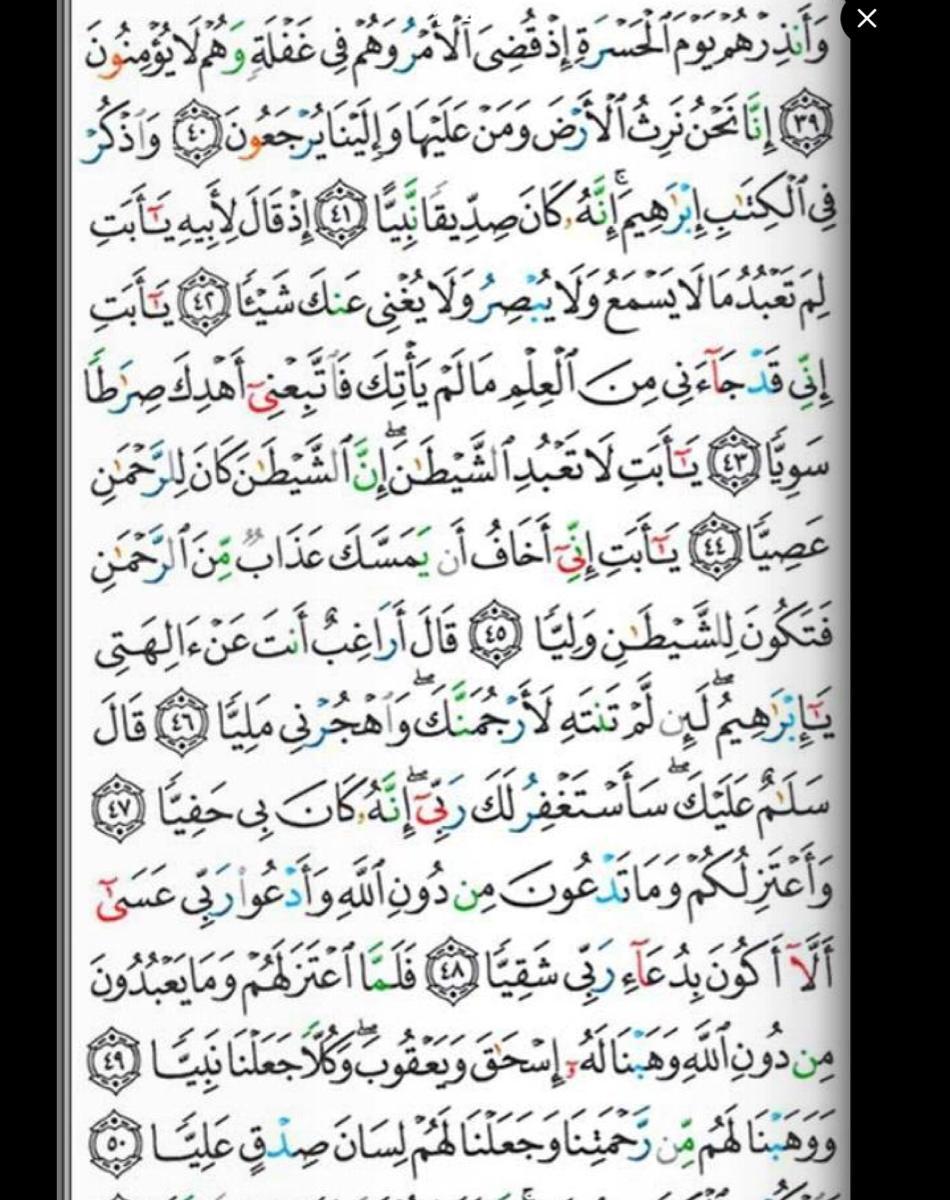 وَأَنذِرْهُمْ يَوْمَ ٱلْحَسْرَةِ إِذْ قُضِىَ ٱلْأَمْرُ وَهُمْ فِى غَفْلَةٍ وَهُمْ لَا يُؤْمِنُونَ
﴿٣٩﴾ إِنَّا نَحْنُ نَرِثُ ٱلْأَرْضَ وَمَنْ عَلَيْهَا وَإِلَيْنَا يُرْجَعُونَ ﴿٤٠﴾ وَٱذْكُرْ
فِى ٱلْكِتَٰبِ إِبْرَٰهِيمَ ۚ إِنَّهُۥ كَانَ صِدِّيقًا نَّبِيًّا ﴿٤١﴾ إِذْ قَالَ لِأَبِيهِ يَٰٓأَبَتِ
لِمَ تَعْبُدُ مَا لَا يَسْمَعُ وَلَا يُبْصِرُ وَلَا يُغْنِى عَنكَ شَيْـًٔا ﴿٤٢﴾ يَٰٓأَبَتِ
إِنِّى قَدْ جَآءَنِى مِنَ ٱلْعِلْمِ مَا لَمْ يَأْتِكَ فَٱتَّبِعْنِىٓ أَهْدِكَ صِرَٰطًا
سَوِيًّا ﴿٤٣﴾ يَٰٓأَبَتِ لَا تَعْبُدِ ٱلشَّيْطَٰنَ ۖ إِنَّ ٱلشَّيْطَٰنَ كَانَ لِلرَّحْمَٰنِ
عَصِيًّا ﴿٤٤﴾ يَٰٓأَبَتِ إِنِّىٓ أَخَافُ أَن يَمَسَّكَ عَذَابٌ مِّنَ ٱلرَّحْمَٰنِ
فَتَكُونَ لِلشَّيْطَٰنِ وَلِيًّا ﴿٤٥﴾ قَالَ أَرَاغِبٌ أَنتَ عَنْ ءَالِهَتِى
يَٰٓإِبْرَٰهِيمُ ۖ لَئِن لَّمْ تَنتَهِ لَأَرْجُمَنَّكَ ۖ وَٱهْجُرْنِى مَلِيًّا ﴿٤٦﴾ قَالَ
سَلَٰمٌ عَلَيْكَ ۖ سَأَسْتَغْفِرُ لَكَ رَبِّىٓ ۖ إِنَّهُۥ كَانَ بِى حَفِيًّا ﴿٤٧﴾
وَأَعْتَزِلُكُمْ وَمَا تَدْعُونَ مِن دُونِ ٱللَّهِ وَأَدْعُوا۟ رَبِّى عَسَىٰٓ
أَلَّآ أَكُونَ بِدُعَآءِ رَبِّى شَقِيًّا ﴿٤٨﴾ فَلَمَّا ٱعْتَزَلَهُمْ وَمَا يَعْبُدُونَ
مِن دُونِ ٱللَّهِ وَهَبْنَا لَهُۥٓ إِسْحَٰقَ وَيَعْقُوبَ ۖ وَكُلًّا جَعَلْنَا نَبِيًّا ﴿٤٩﴾
وَوَهَبْنَا لَهُم مِّن رَّحْمَتِنَا وَجَعَلْنَا لَهُمْ لِسَانَ صِدْقٍ عَلِيًّا ﴿٥٠﴾